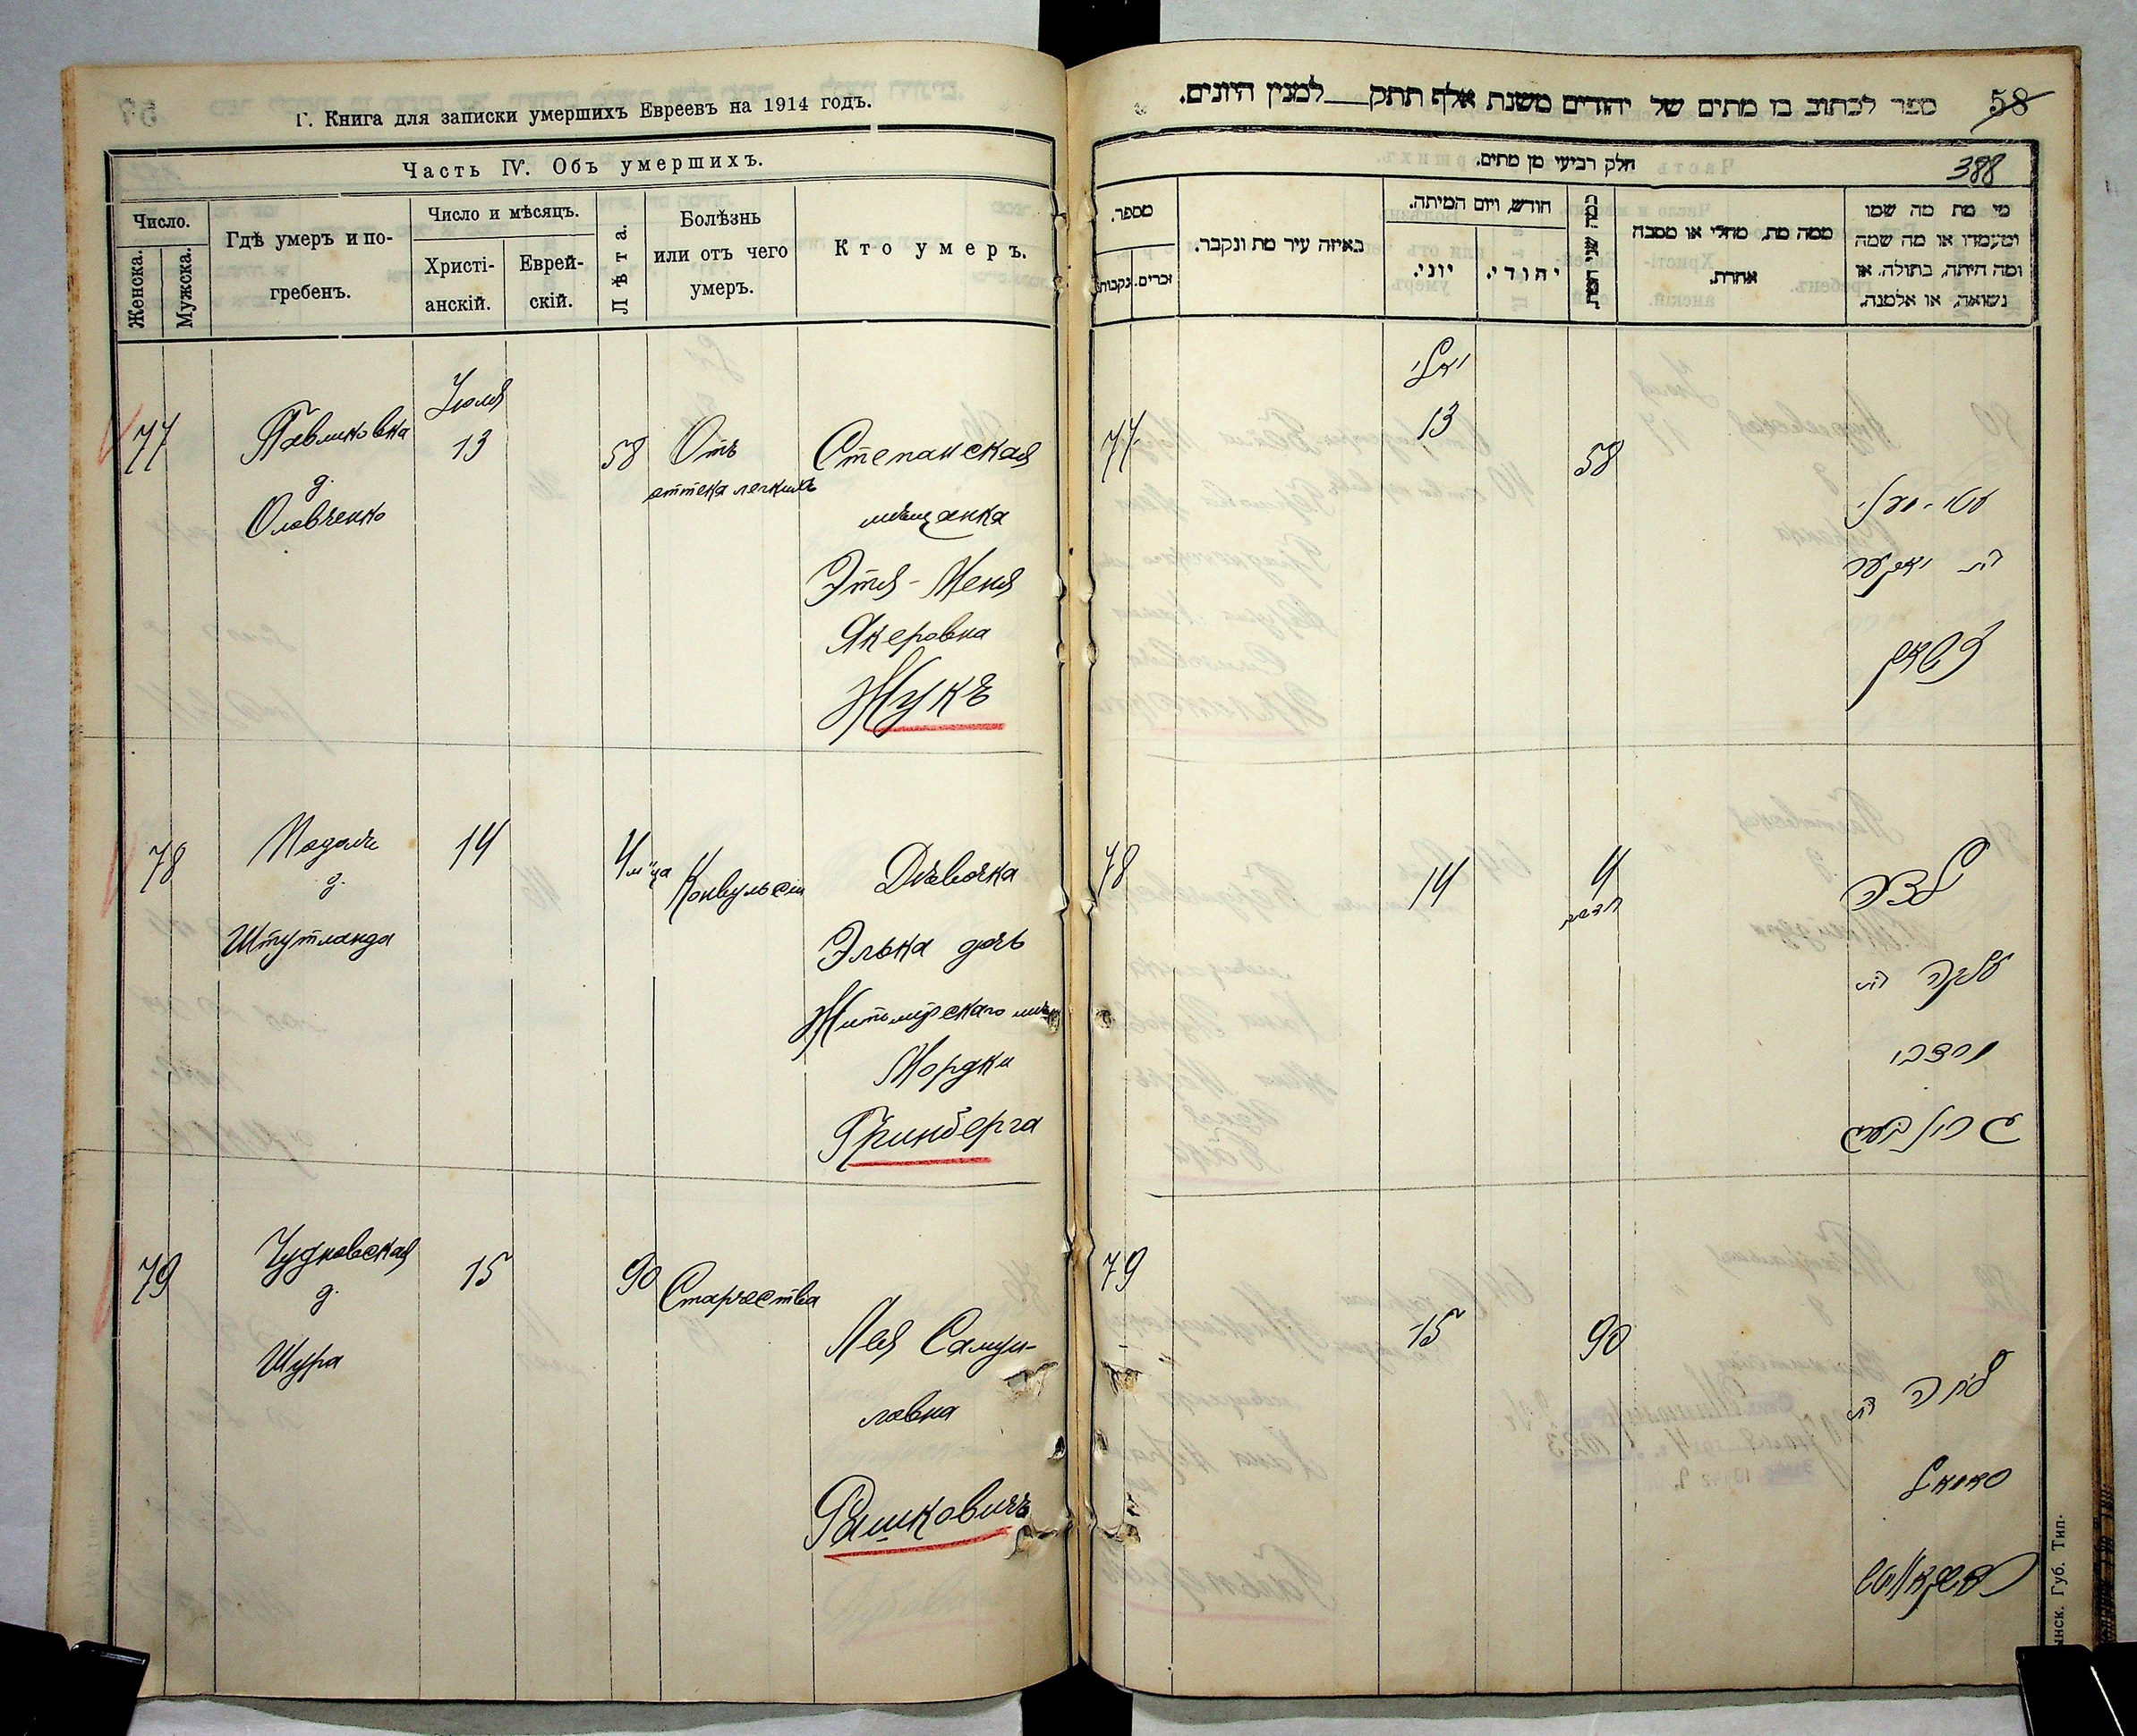 Г. Книга для записки умершихъ Евреевъ на 1914 годъ.
Часть IV. Объ умершихъ.
Число.
Женска.
Мужска.
Гдѣ умеръ и по-
гребенъ.
Число и мѣсяцъ.
Христі-
анскій.
Еврей-
скій.
Лѣта.
Болѣзнь
или отъ чего
умеръ.
Кто умеръ.
77
Павликовка
д.
Оловченко
Іюля
13
58
Отъ
оттека легкихъ
Степанская
мѣщанка
Этя-Меня
Якеровна
Жукъ
78
д.
Штутланда
14
4 м-ца
Конвульсіи
Дѣвочка
Элька дочь
Житомирскаго мѣщ
Мордки
Гринберга
79
Чудновская
д.
Шура
15
90
Старчества
Лея Самуи-
ловна
Рашковичъ
ספר לכתוב בו מתים של יהודים משנת אלף תתק למנין היונים.
58
388
חלק רביעי מן מתים.
מספר.
זכרים.
נקבות.
באיזה עיר מת ונקבר.
חודש, ויום המיתה.
יוני.
יהודי.
כמה שני המת.
ממה מת, מחלי או מסבה
אחרת.
מי מת מה שמו
ומעמדו או מה שמה
ומה היתה, בתולה, או
נשואה, או אלמנה.
77
יולי
13
58
78
14
4
חדשים
עלקה בת
מרדכי
גרינבערג
79
15
90
לאה בת
שמואל
ынск. Губ. Тип.